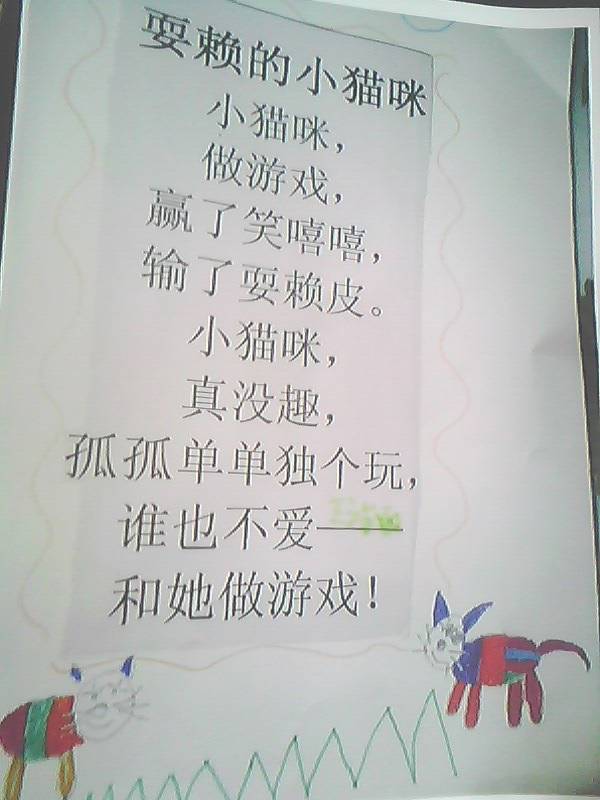 耍赖的小猫咪
小猫咪，
做游戏，
赢了笑嘻嘻，
输了耍赖皮。
小猫咪，
真没趣，
孤孤单单独个玩，
谁也不爱——
和她做游戏！